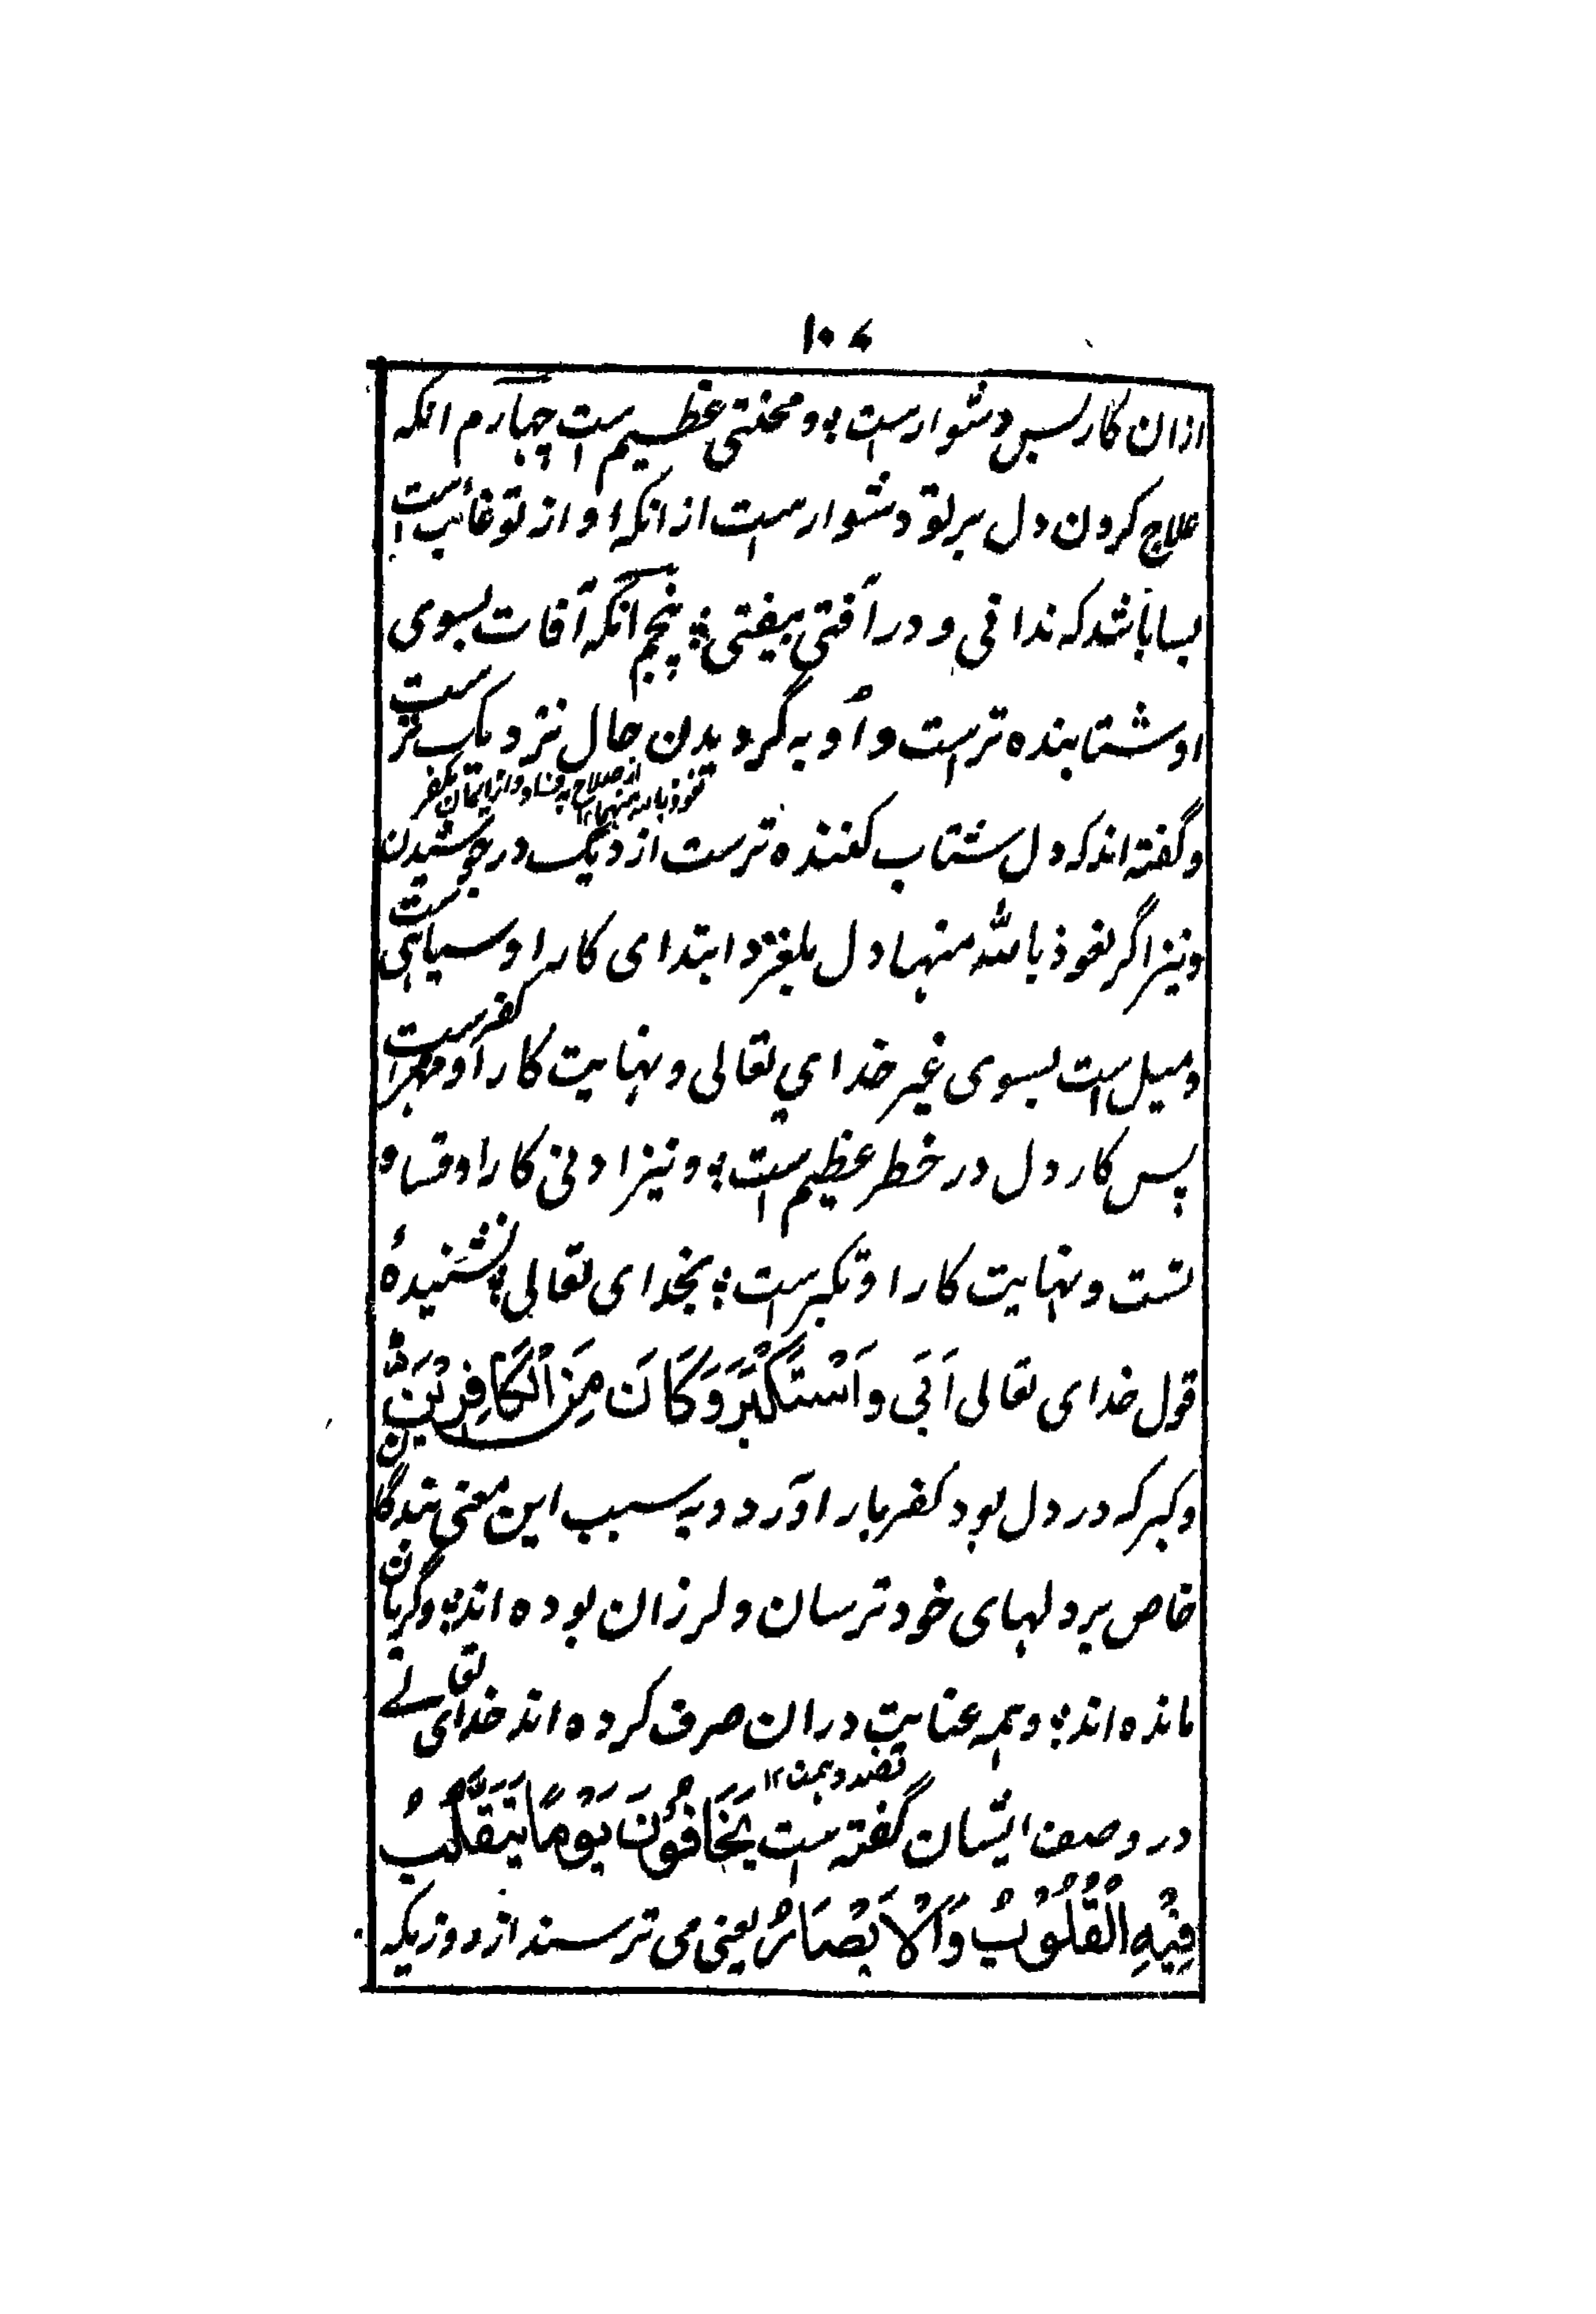 ۱۰۷
ازان کار بس دشوارست ؛ و محنتی عظیم ست چهارم انکه
علاج کردن دل بر تو دشوارست از انکه او از تو غائب است
بسا باشد که ندانی و در آفتی بیفتی ؛ پنجم انکه آفات بسوی
او شتابنده ترست و او به گردیدن حال نزدیک ترست
از صلاح به فساد و از ایمان بکفر
نعوذ بالله منها ۱۲
و گفته اند که دل شتاب کننده ترست از دیگ در جوشیدن
و نیز اگر نعوذ بالله منها دل بلغزد ابتدای کار او سیاهی ست
و میل است بسوی غیر خدای تعالی و نهایت کار او کفرست
پس کار دل در خطر عظیم ست ؛ و نیز ادنی کار او قساو
تست و نهایت کار او تکبرست ؛ بخدای تعالی ؛ نشنیدهٔ
قول خدای تعالی اَبَی وَاسْتَکْبَرَ وَکَانَ مِنَ الْکَافِرِیْنَ
و کبر که در دل بود کفر بار آورد و به سبب این معنی بندگان
خاص بر دلهای خود ترسان و لرزان بوده اند ؛ و گریان
مانده اند ؛ و همه عنایت دران صرف کرده اند خدای تعالے
قصد و همت ۱۲
در وصف ایشان گفته ست یَخَافُوْنَ یَوْمًا تَتَقَلَّبُ
فِیْهِ الْقُلُوْبُ وَالْاَبْصَارُ یعنی می ترسند از روزیکه